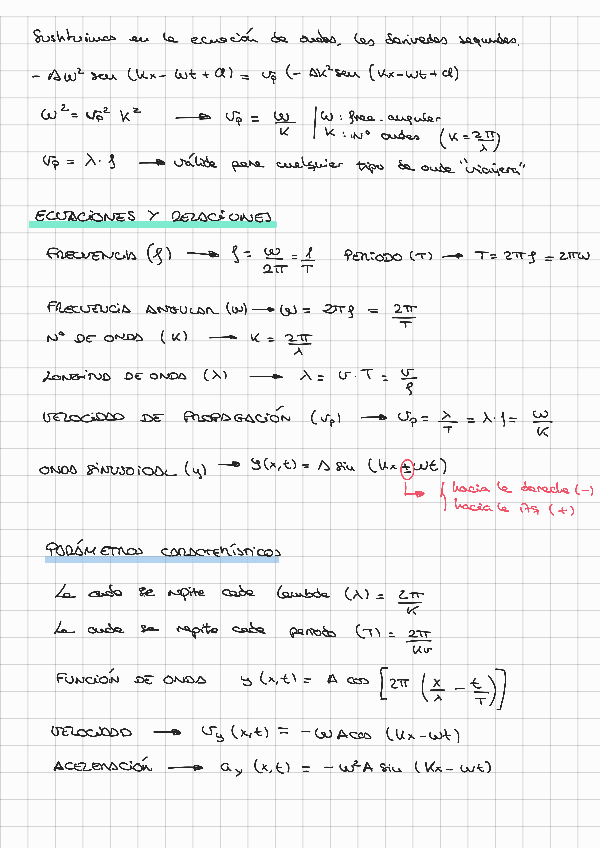 Sustituimos en la ecuación de ondas, las derivadas segundas.
- Aω² sen (kx - ωt + α) = vp² (- Ak² sen (kx - ωt + α)
ω² = vp² k² → vp = ω/k | ω: frec. angular
k: nº ondas (k = 2π/λ)
vp = λ · f → válida para cualquier tipo de onda "viajera"
ECUACIONES Y RELACIONES
FRECUENCIA (f) → f = ω/2π = 1/T PERIODO (T) → T = 2πf = 2πω
FRECUENCIA ANGULAR (ω) → ω = 2πf = 2π/T
Nº DE ONDA (K) → K = 2π/λ
LONGITUD DE ONDA (λ) → λ = v · T = v/f
VELOCIDAD DE PROPAGACIÓN (vp) → vp = λ/T = λ · f = ω/K
ONDA SINUSOIDAL (y) → y(x,t) = A sin (kx ± ωt)
hacia la derecha (-)
hacia la izq (+)
PARÁMETROS CARACTERÍSTICOS
La onda se repite cada lambda (λ) = 2π/K
La onda se repite cada periodo (T) = 2π/kv
FUNCIÓN DE ONDA y (x,t) = A cos [2π (x/λ - t/T)]
VELOCIDAD → vy (x,t) = -ωA cos (kx - ωt)
ACELERACIÓN → ay (x,t) = -ω²A sin (kx - ωt)